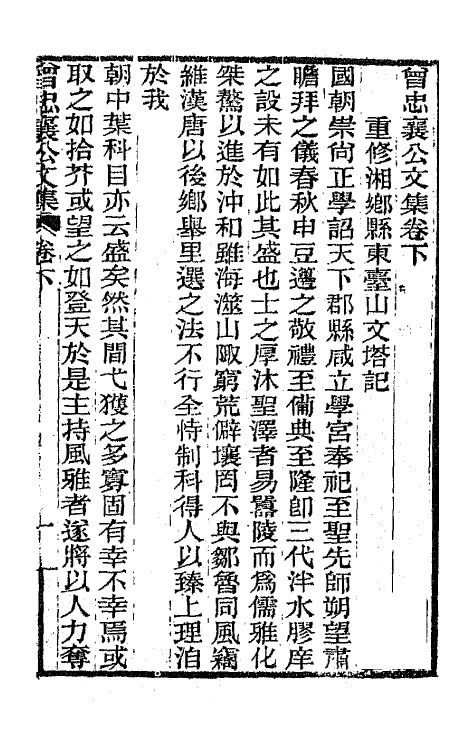 曾忠襄公文集卷下
重修湘鄉縣東臺山文塔記
國朝崇尙正學詔天下郡縣咸立學宮奉祀至聖先師朔望肅
瞻拜之儀春秋申豆籩之敬禮至備典至隆卽三代泮水膠庠
之設未有如此其盛也士之厚沐聖澤者易囂陵而爲儒雅化
桀驁以進於沖和雖海澨山陬窮荒僻壤罔不與鄒魯同風竊
維漢唐以後鄉舉里選之法不行全恃制科得人以臻上理洎
於我
朝中葉科目亦云盛矣然其間弋獲之多寡固有幸不幸焉或
取之如拾芥或望之如登天於是主持風雅者遂將以人力奪
曾忠襄公文集 卷下 一